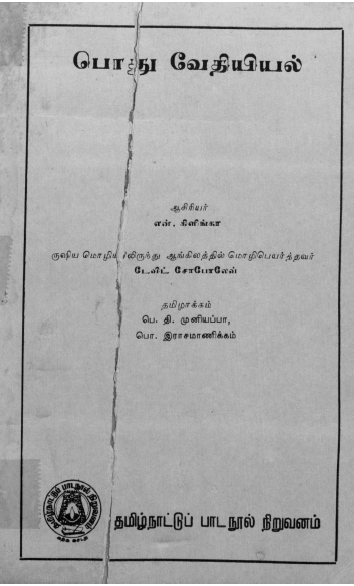 பொது வேதியியல்
ஆசிரியர்
என். கிளிங்கா
ருஷிய மொழியிலிருந்து ஆங்கிலத்தில் மொழிபெயர்த்தவர்
டேவிட். சோபோலேவ்
தமிழாக்கம்
பெ. தி. முனியப்பா,
பொ. இராசமாணிக்கம்
தமிழ்நாட்டுப் பாடநூல் நிறுவனம்
தமிழ்நாட்டுப் பாட நூல் நிறுவனம்